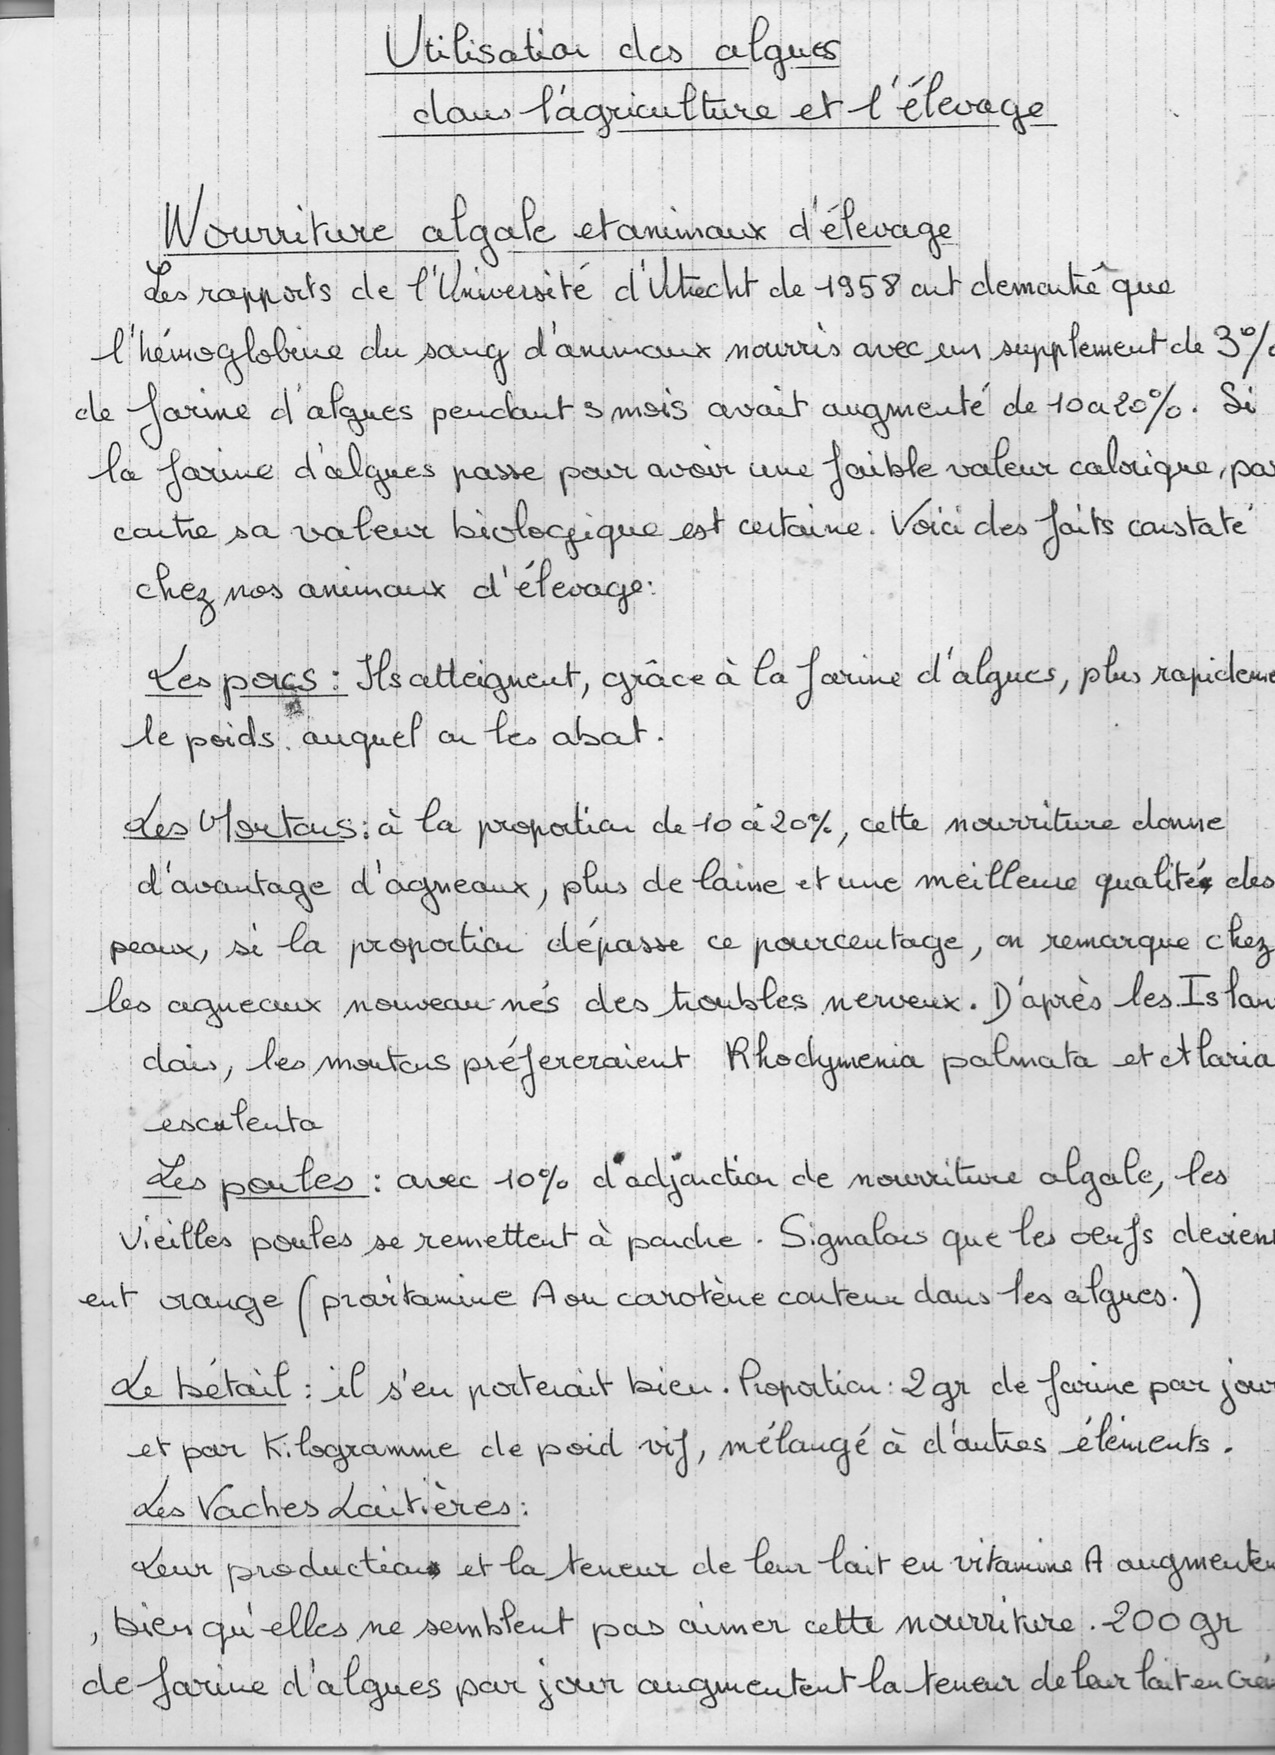 Utilisation des algues
dans l'agriculture et l'élevage
Nourriture algale et animaux d'élevage
Les rapports de l'Université d'Utrecht de 1958 ont démontré que
l'hémoglobine du sang d'animaux nourris avec un supplement de 3%
de farine d'algues pendant 3 mois avait augmenté de 10 a 20%. Si
la farine d'algues passe pour avoir une faible valeur calorique, par
contre sa valeur biologique est certaine. Voici des faits constaté
chez nos animaux d'élevage:
Les porcs : Ils atteignent, grâce à la farine d'algues, plus rapideme
le poids auquel on les abat.
Les Moutons : à la proportion de 10 à 20%, cette nourriture donne
d'avantage d'agneaux, plus de laine et une meilleure qualité des
peaux, si la proportion dépasse ce pourcentage, on remarque chez
les agneaux nouveau-nés des troubles nerveux. D'après les Islan
dais, les moutons préfereraient Rhodymenia palmata et Alaria
esculenta
Les poules : avec 10% d'adjonction de nourriture algale, les
vieilles poules se remettent à pondre. Signalons que les oeufs devienn
ent orange (provitamine A ou carotène contenu dans les algues.)
Le bétail : il s'en porterait bien. Proportion : 2 gr de farine par jour
et par Kilogramme de poid vif, mélangé à d'autres éléments.
Les Vaches Laitières :
Leur production et la teneur de leur lait en vitamine A augmenten
, bien qu'elles ne semblent pas aimer cette nourriture. 200 gr
de farine d'algues par jour augmentent la teneur de leur lait en crè